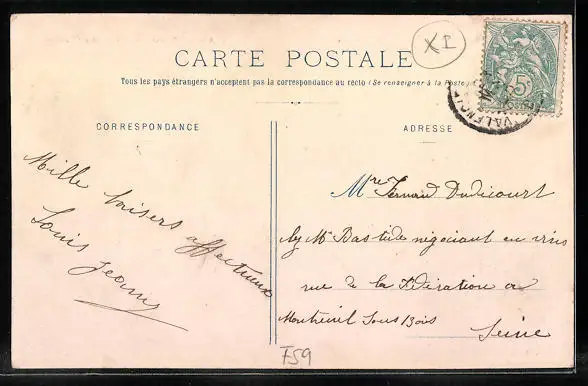 XI
CARTE POSTALE
Tous les pays étrangers n'acceptent pas la correspondance au recto (Se renseigner à la Poste)
CORRESPONDANCE
Mille baisers affectueux
Louis
ADRESSE
5c
VALENCIE
Mre Fernand Dudicourt
Mr Bastide négociant en vins
rue de la Fédération a
Montreuil Sous Bois
Seine
F59